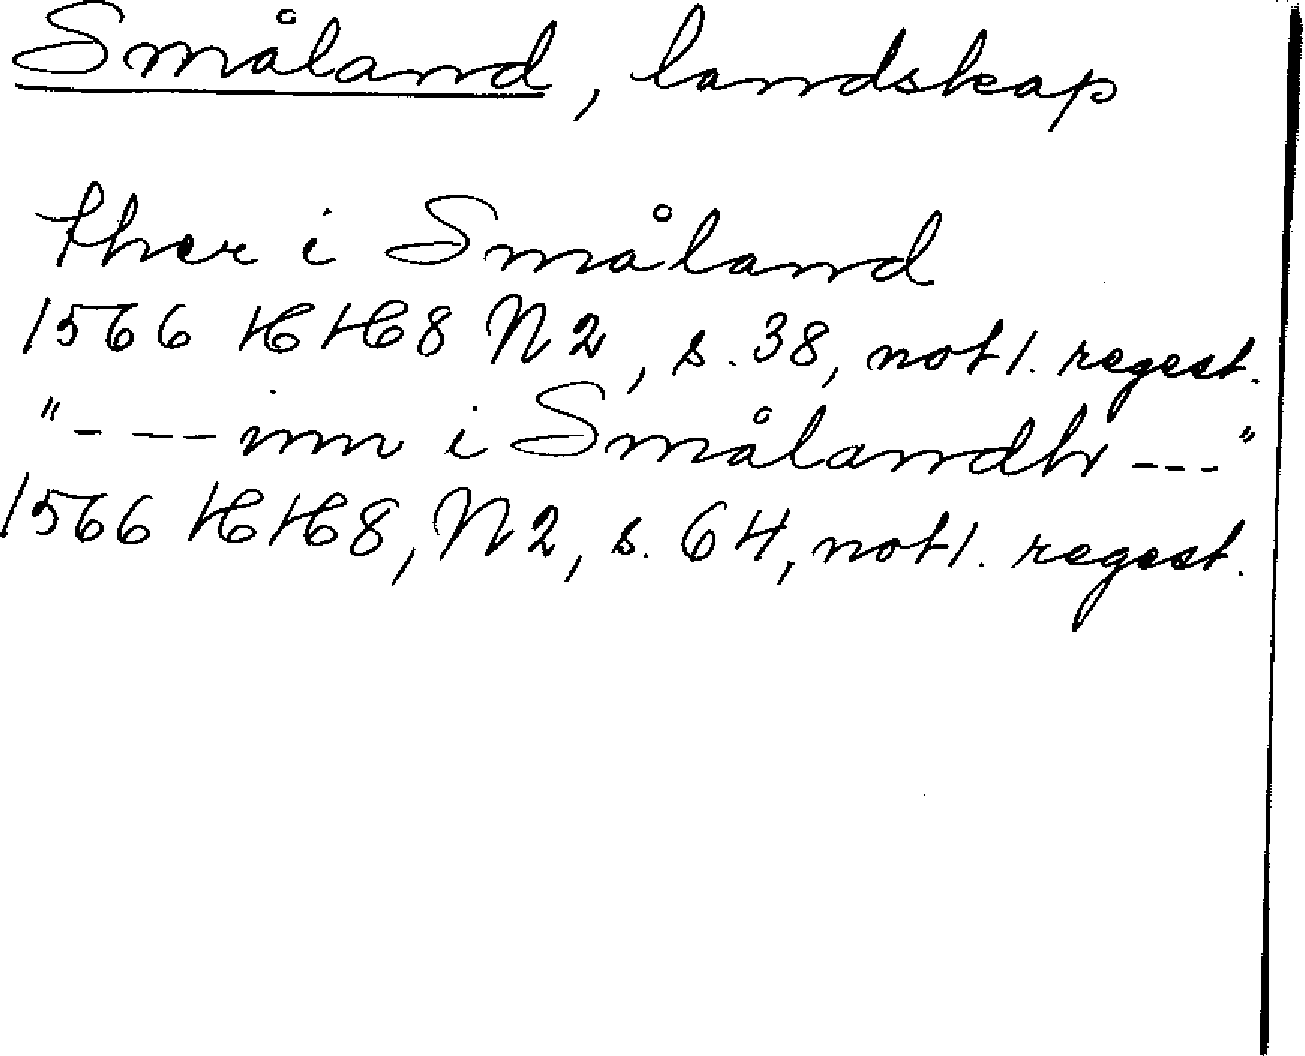 Småland, landskap
ther i Småland
1566 HH8 N2, s. 38, not 1. regest.
"- --- inn i Smålandh ---"
1566 HH8, N2, s. 64, not 1. regest.